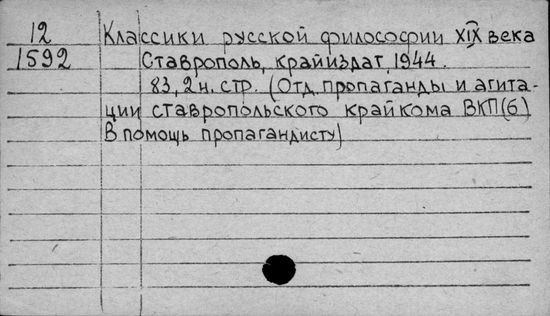 12 Классики русской философии XIX века
1592 Ставрополь, крайиздат, 1944.
83, 2 н. стр. (Отд. пропаганды и агита-
ции ставропольского крайкома ВКП(б)
В помощь пропагандисту)